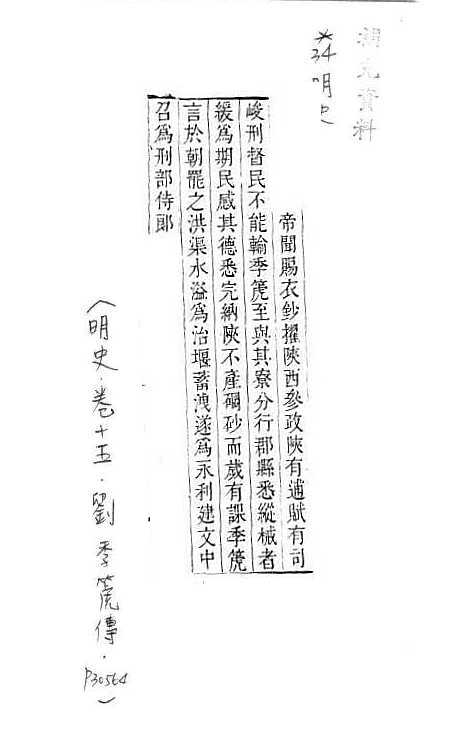 補充資料
*34 明史
帝聞賜衣鈔擢陝西參政陝有逋賦有司
峻刑督民不能輸季箎至與其寮分行郡縣悉縱械者
緩為期民感其德悉完納陝不產硇砂而歲有課季箎
言於朝罷之洪渠水溢為治堰蓄洩遂為永利建文中
召為刑部侍郎
(明史·卷十五·劉季箎傳·P30564)